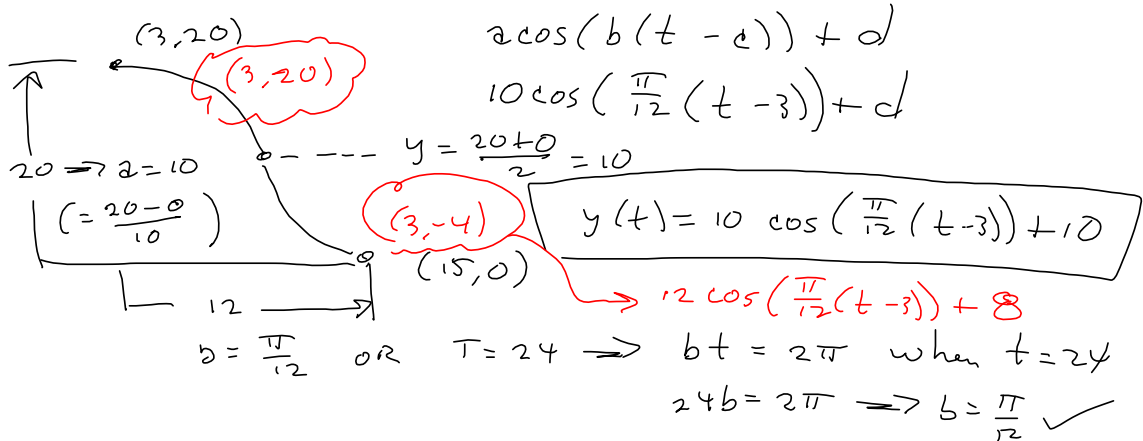 (3,20)
(3,20)
a cos(b(t - c)) + d
10 cos(π/12 (t - 3)) + d
20 → a = 10
y = (20+0)/2 = 10
(= (20-0)/10)
(3,-4)
(15,0)
y(t) = 10 cos(π/12 (t-3)) + 10
12
12 cos(π/12 (t-3)) + 8
b = π/12 OR T = 24 → bt = 2π when t = 24
24b = 2π → b = π/12 ✓